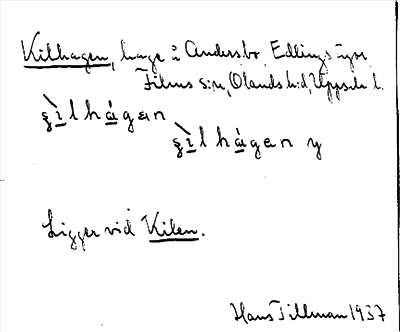 Kilhagen, hage i Andersbo, Edlings ägor
Films s:n, Olands hd, Uppsala l.
ʂìlhágan
ʂìlhágen y
Ligger vid Kilen.
Hans Tillman 1937